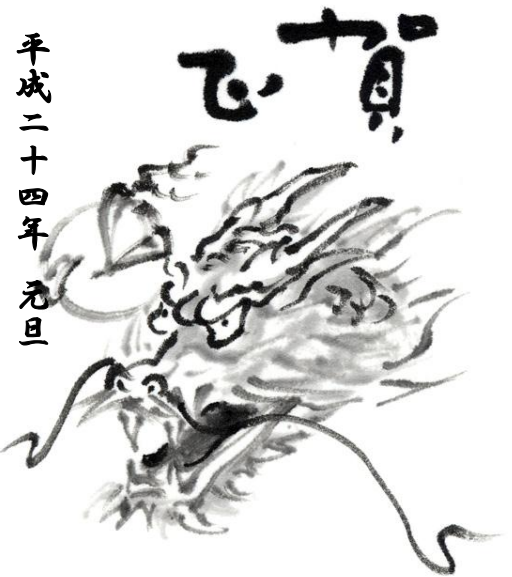 賀正
平成二十四年 元旦